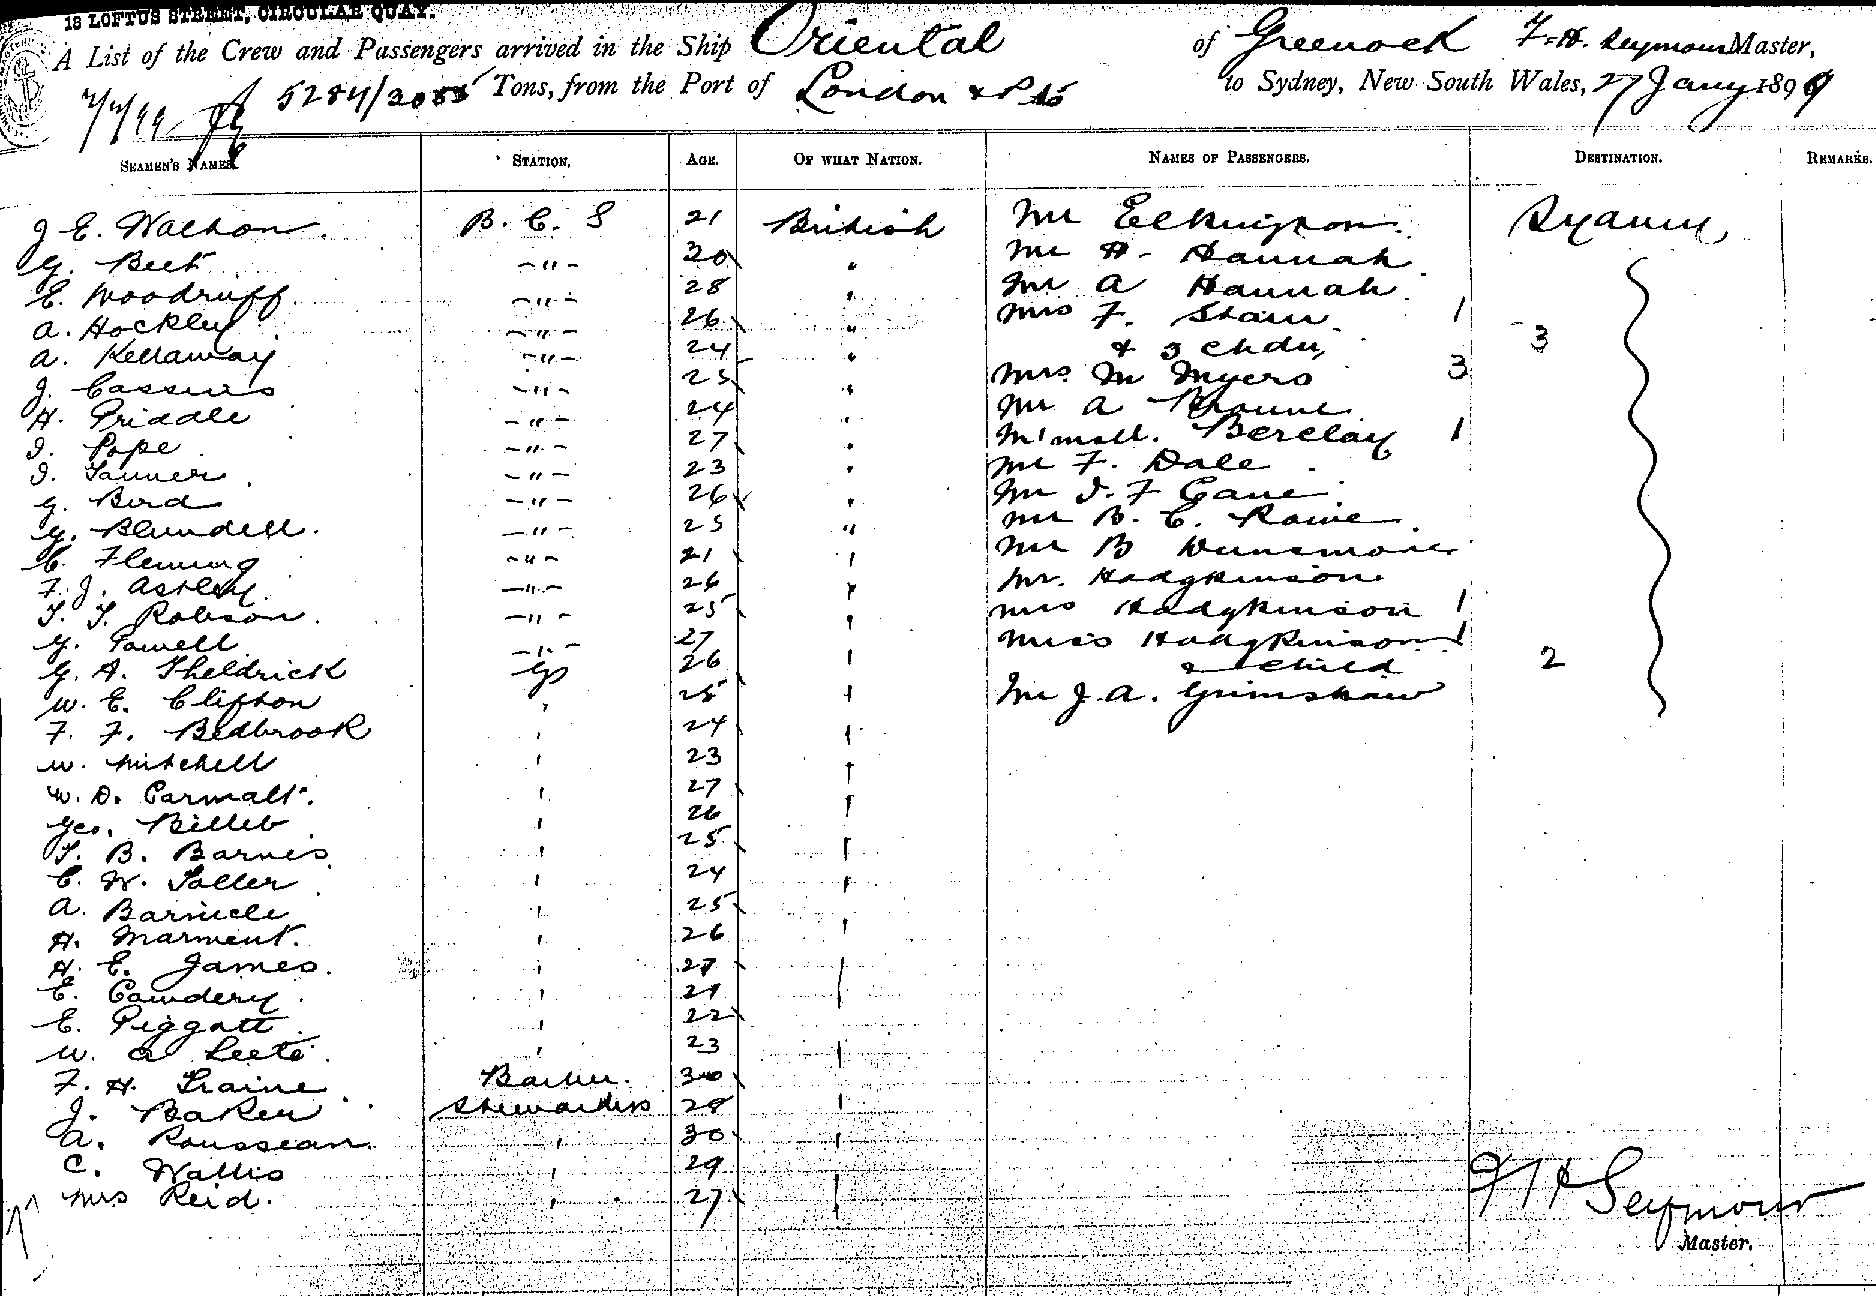 18 LOFTUS STREET, CIRCULAR QUAY.
A List of the Crew and Passengers arrived in the Ship Oriental of Greenock F. H. Seymour Master,
7/4/99 5284/3085 Tons, from the Port of London & Pts to Sydney, New South Wales, 27 Jany 1899
SEAMEN'S NAMES. STATION. AGE. OF WHAT NATION. NAMES OF PASSENGERS. DESTINATION. REMARKS.
J E. Walton B. C. S 21 British Mr Elkington Sydney
G. Beet -"- 20 " Mr H. Hannah
E. Woodruff -"- 28 " Mr A Hannah
A. Hockley -"- 26 " Mrs F. Shaw 1
& 3 chdn 3
A. Kellaway -"- 24 " Mrs M Myers 3
J. Cassins -"- 25 "
H. Priddle -"- 24 " Mr A Browne
I. Pope -"- 27 " Berclay 1
I. Tanner -"- 23 " Mr F. Dale
G. Bird -"- 26 " Mr I. F Gane
G. Blundell -"- 25 " Mr B. C. Raine
C. Fleming -"- 21 " Mr B Dunsmore
F. J. Astley -"- 26 " Mr. Hodgkinson
T. T. Robson -"- 25 " Mrs Hodgkinson 1
G. Powell -"- 27 Miss Hodgkinson 1
G. A. Theldrick GS 26 " & child 2
W. E. Clifton " 25 " Mr J. A. Grimshaw
F. F. Bedbrook " 24 "
W. Mitchell 23 "
W. D. Carmalt " 27 "
Geo. Billeb " 26 "
T. B. Barnes " 25 "
C. W. Toller " 24 "
A. Barnicle " 25 "
H. Marment " 26 "
H. E. James " 27
E. Cowdery " 21
E. Piggott " 22
W. A Leete " 23
F. H. Traine Barber 30
J. Baker Stewardess 28 "
A. Rousseau " 30 "
C. Wallis " 29
Mrs Reid. " 27
F H Seymour
Master.